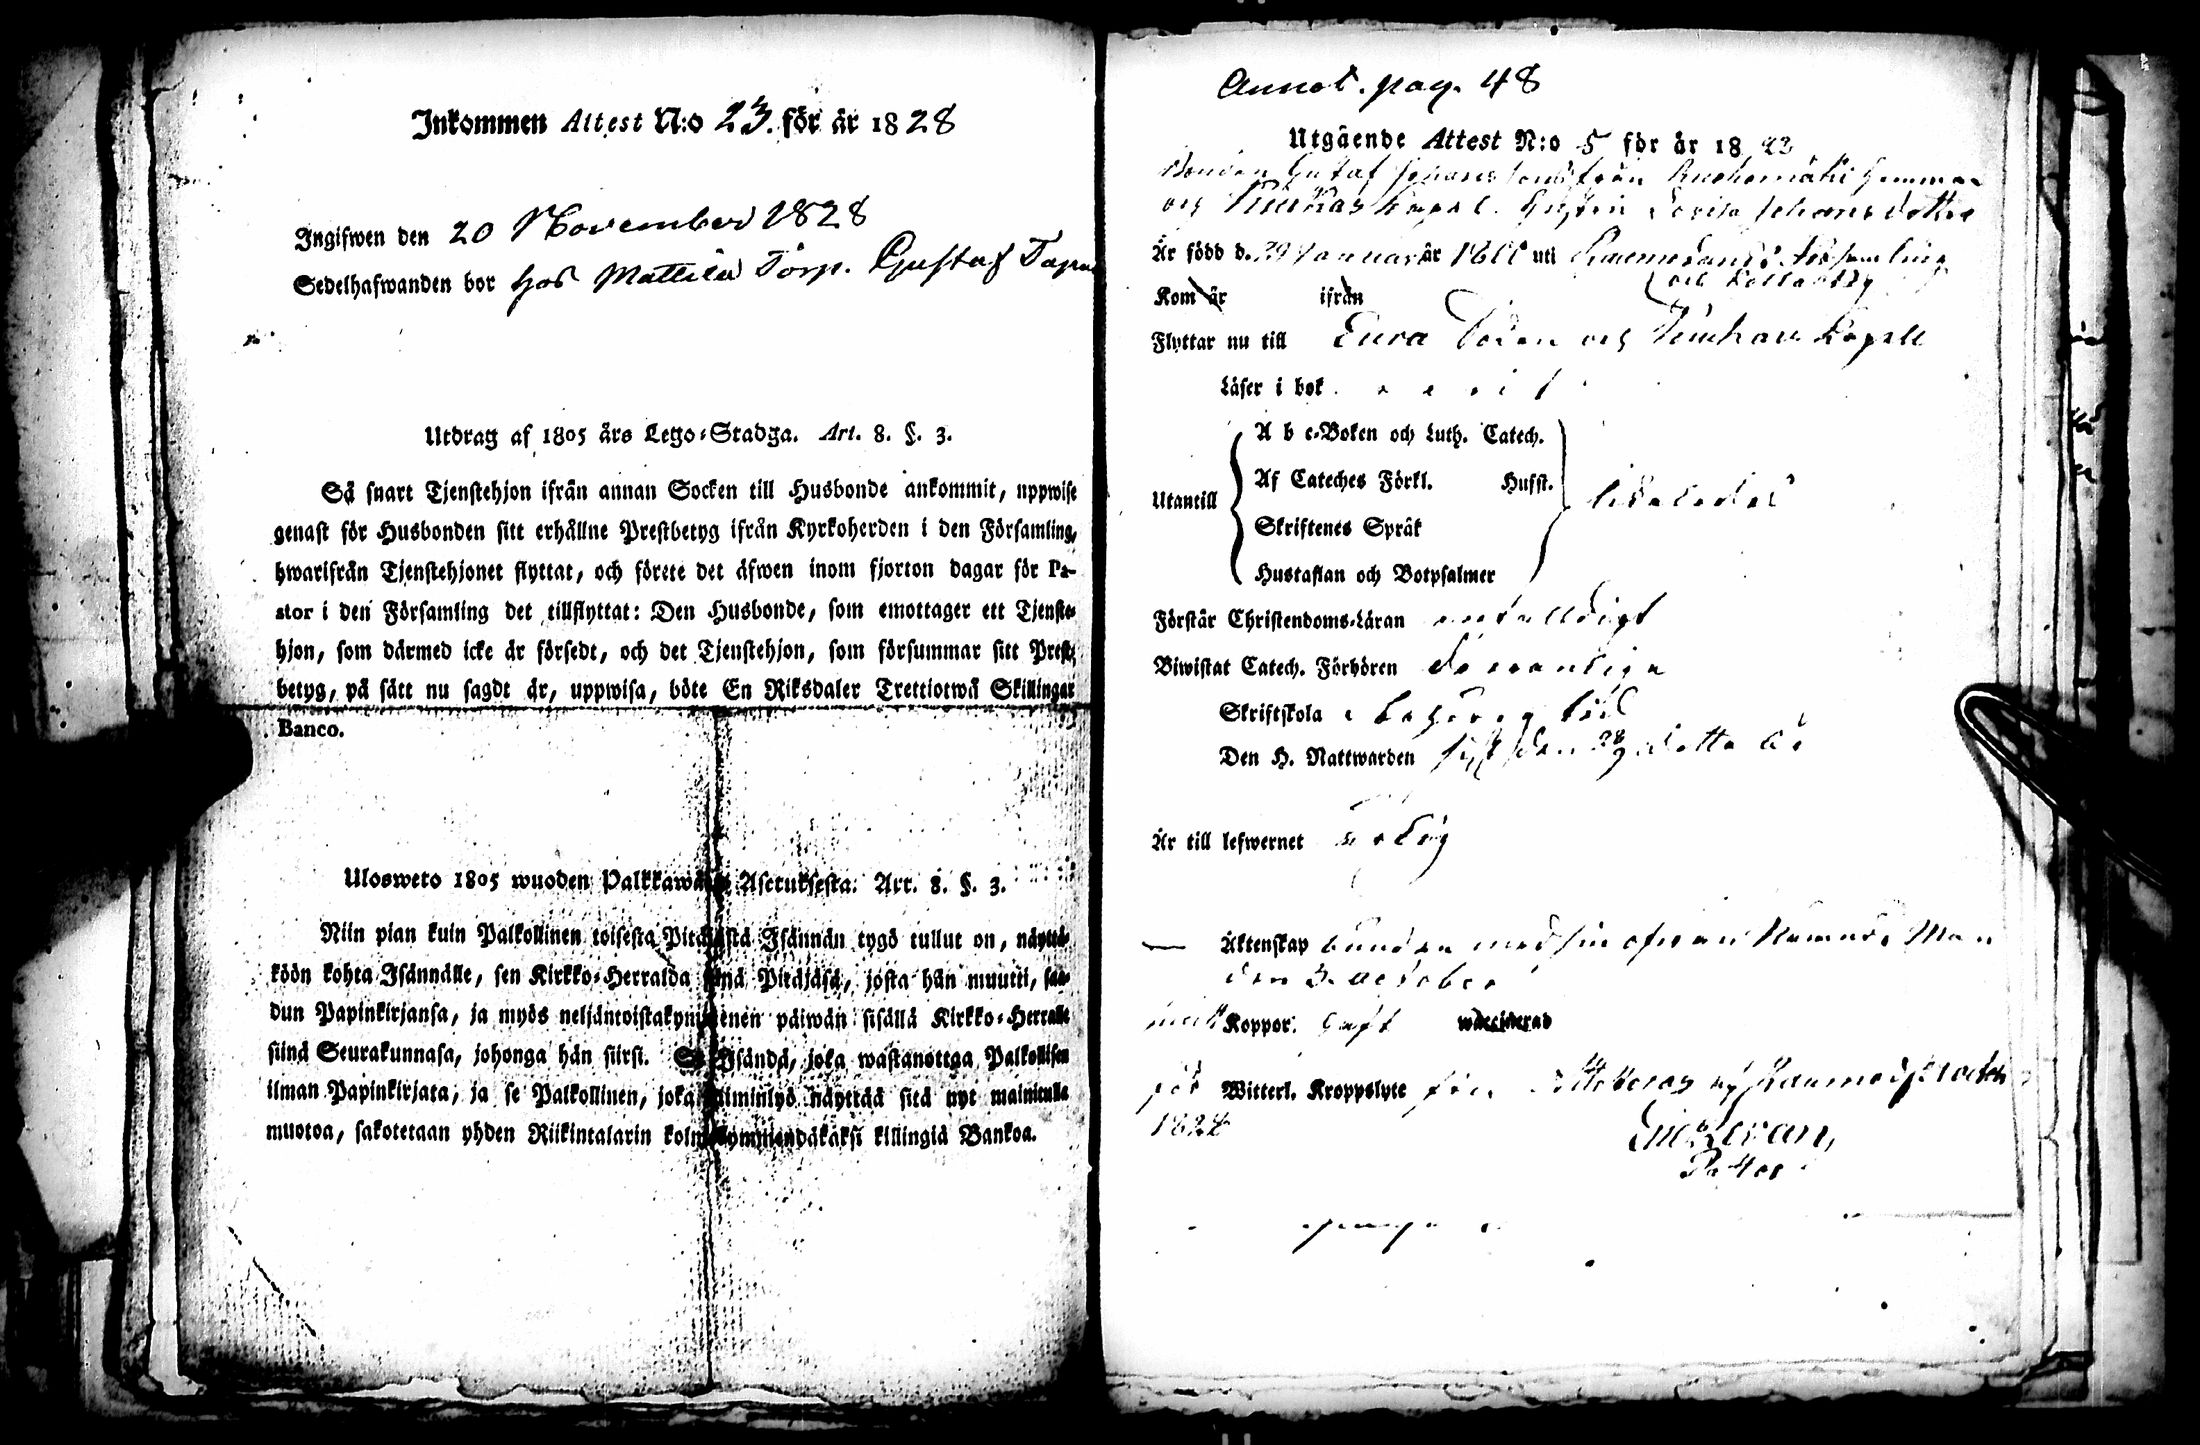 Inkommen Attest N:o 23. för år 1828
Ingifwen den 20 November 1828
Sedelhafwanden bor hos Mattila Torp. Gustaf
Utdrag af 1805 års Lego-Stadga. Art. 8. §. 3.
Så snart Tjenstehjon ifrån annan Socken till Husbonde ankommit, uppwise
genast för Husbonden sitt erhållne Prestbetyg ifrån Kyrkoherden i den Församling,
hwarifrån Tjenstehjonet flyttat, och förete det äfwen inom fjorton dagar för Pa-
stor i den Församling det tillflyttat: Den Husbonde, som emottager ett Tjenste-
hjon, som därmed icke är försedt, och det Tjenstehjon, som försummar sitt Prest-
betyg, på sätt nu sagdt är, uppwisa, böte En Riksdaler Trettiotwå Skillingar
Banco.
Ulosweto 1805 wuoden Asetuksesta. Art. 8. §. 3.
Niin pian kuin Palkollinen toisesta Pitäjästä Isännän tygö tullut on, näyttä-
köön kohta Isännälle, sen Kirkko-Herralda siinä Pitäjäsä, josta hän muutti, saa-
dun Papinkirjansa, ja myös neljäntoistakymmenen päiwän sisällä Kirkko-Herralle
siinä Seurakunnasa, johonga hän siirsi. Se Isändä, joka wastanottaa Palkollisen
ilman Papinkirjata, ja se Palkollinen, joka laiminlyö näyttää sitä nyt mainitulla
muotoa, sakotetaan yhden Riikintalarin kolmekymmendäkaksi killingiä Bankoa.
Annot. pag. 48
Utgående Attest N:o 5 för år 18
Bonden Gustaf ifrån
och Kapell Hustru Lovisa Johansdotter
Är född d. 29 Januari år uti Raumo Lands Församling
Kom år ifrån
Flyttar nu till Eura Socken och Kapell
Läser i bok
A b c-Boken och Luth. Catech.
Af Cateches Förkl. Hufst.
Utantill likaledes
Skriftenes Språk
Hustaflan och Botpsalmer
Förstår Christendoms-Läran enfaldigt
Biwistat Catech. Förhören
Skriftskola i behörig tid
Den H. Nattwarden sist den detta år
Är till lefwernet ärlig
Äktenskap bunden med sin ofvan Man
den 3. October
Koppor. haft waccinerad
Witterl. Kroppslyte fri.
1828
Pastor